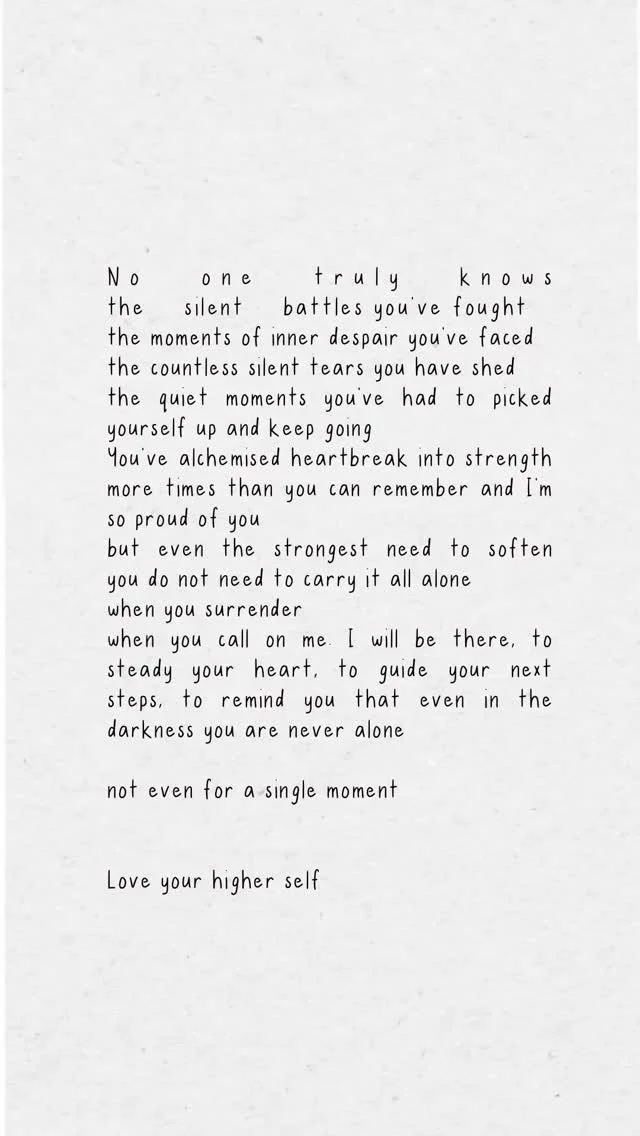 No one truly knows
the silent battles you've fought
the moments of inner despair you've faced
the countless silent tears you have shed
the quiet moments you've had to picked
yourself up and keep going
You've alchemised heartbreak into strength
more times than you can remember and I'm
so proud of you
but even the strongest need to soften
you do not need to carry it all alone
when you surrender
when you call on me. I will be there, to
steady your heart, to guide your next
steps, to remind you that even in the
darkness you are never alone
not even for a single moment
Love your higher self